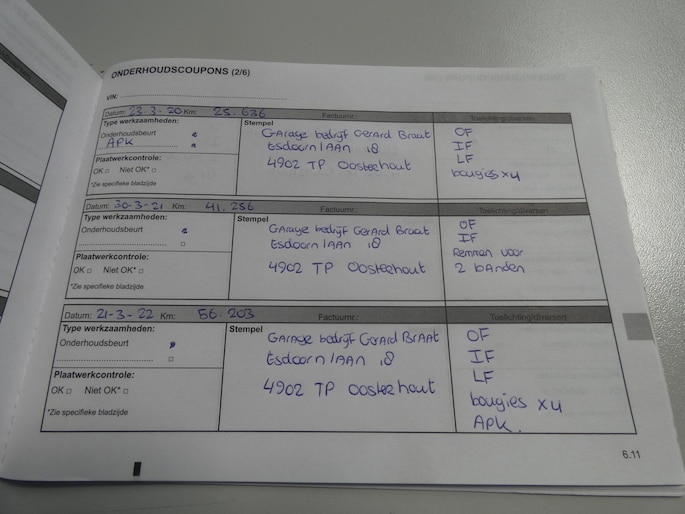 ONDERHOUDSCOUPONS (2/6)
VIN:
Datum: 23-3-20 Km: 25.636 Factuurnr.: Toelichting/diversen
Type werkzaamheden: Stempel
Onderhoudsbeurt
APK
Plaatwerkcontrole:
OK □ Niet OK* □
*Zie specifieke bladzijde
GArage bedrijf Gerard Braat
Esdoornlaan 18
4902 TP Oosterhout
OF
IF
LF
bougies x4
Datum: 30-3-21 Km: 41.256 Factuurnr.: Toelichting/diversen
Type werkzaamheden: Stempel
Onderhoudsbeurt
Plaatwerkcontrole:
OK □ Niet OK* □
*Zie specifieke bladzijde
GArage bedrijf Gerard Braat
Esdoornlaan 18
4902 TP Oosterhout
OF
IF
Remmen voor
2 banden
Datum: 21-3-22 Km: 56.203 Factuurnr.: Toelichting/diversen
Type werkzaamheden: Stempel
Onderhoudsbeurt
Plaatwerkcontrole:
OK □ Niet OK* □
*Zie specifieke bladzijde
GArage bedrijf Gerard Braat
Esdoornlaan 18
4902 TP Oosterhout
OF
IF
LF
bougies x4
APK.
6.11